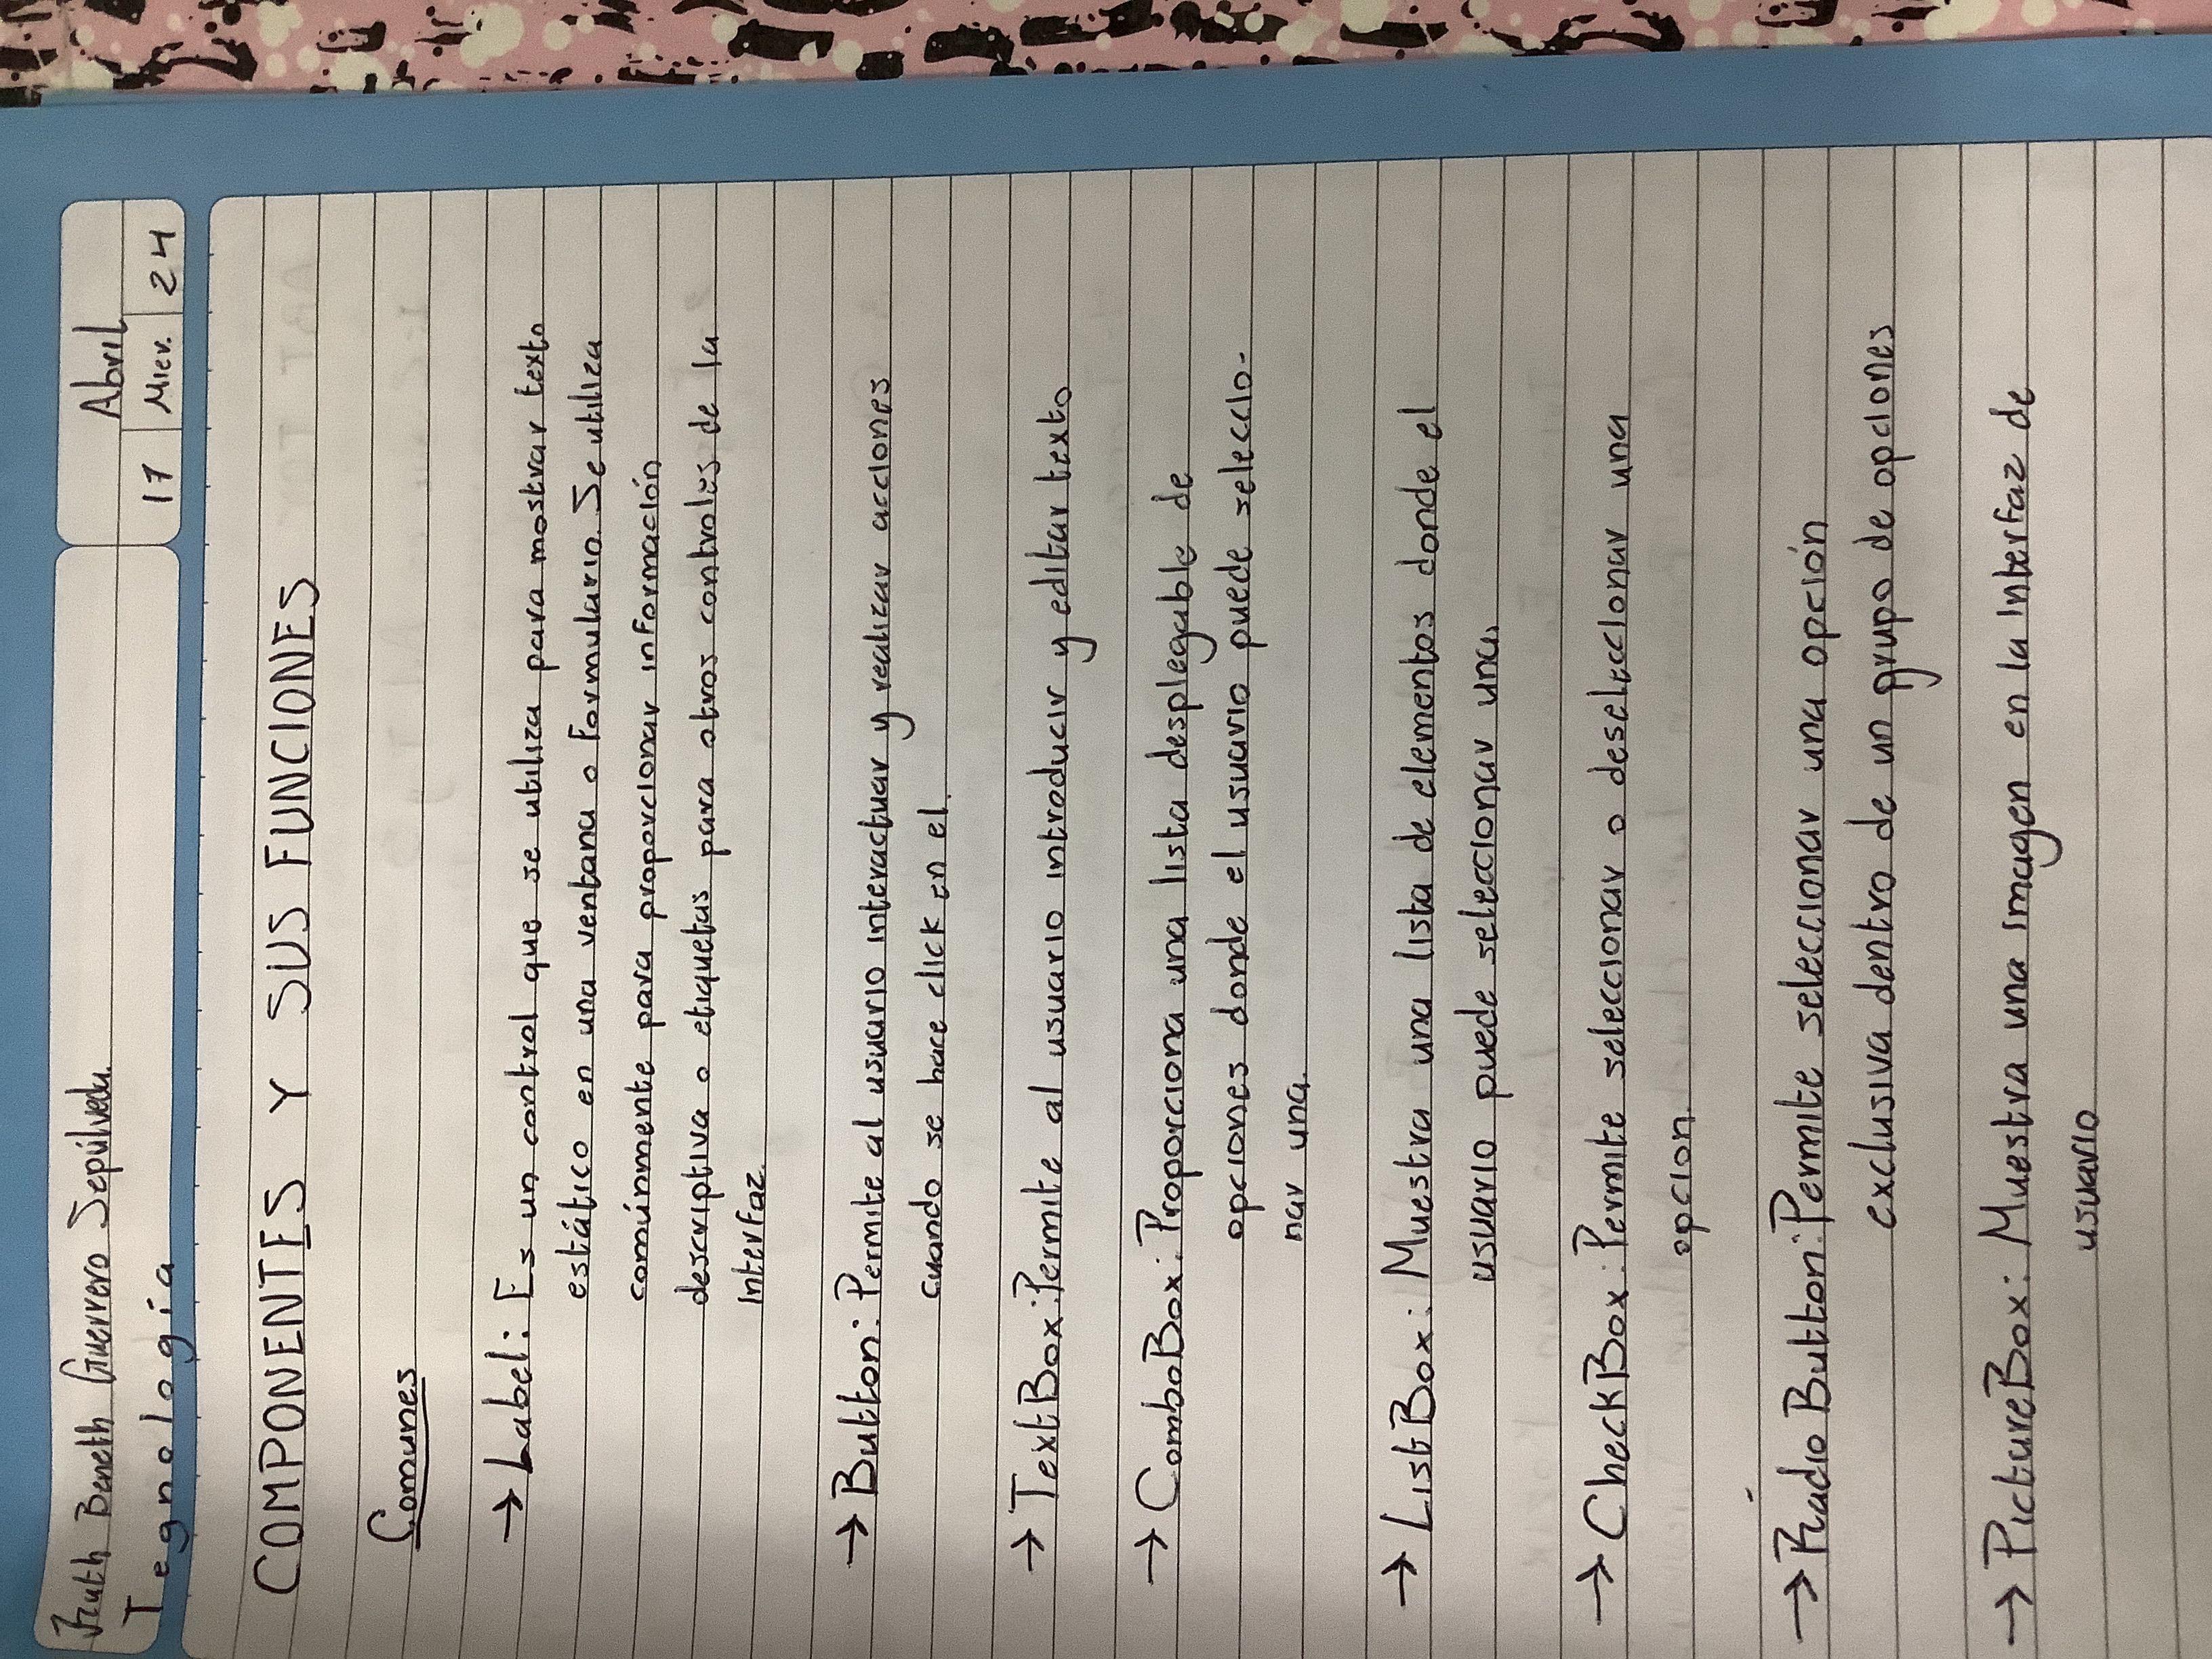 Ruth Baneth Guerrero Sepúlveda.
Tegnología
Abril
17 Mier. 24
COMPONENTES Y SUS FUNCIONES
Comunes
→ Label: Es un control que se utiliza para mostrar texto
estático en una ventana o formulario. Se utiliza
comúnmente para proporcionar información
descriptiva o etiquetas para otros controles de la
interfaz.
→ Button: Permite al usuario interactuar y realizar acciones
cuando se hace click en el.
→ TextBox: Permite al usuario introducir y editar texto
→ ComboBox: Proporciona una lista desplegable de
opciones donde el usuario puede seleccio-
nar una.
→ ListBox: Muestra una lista de elementos donde el
usuario puede seleccionar una.
→ CheckBox: Permite seleccionar o deseleccionar una
opcion.
→ Radio Button: Permite seleccionar una opción
exclusiva dentro de un grupo de opciones
→ PictureBox: Muestra una imagen en la interfaz de
usuario